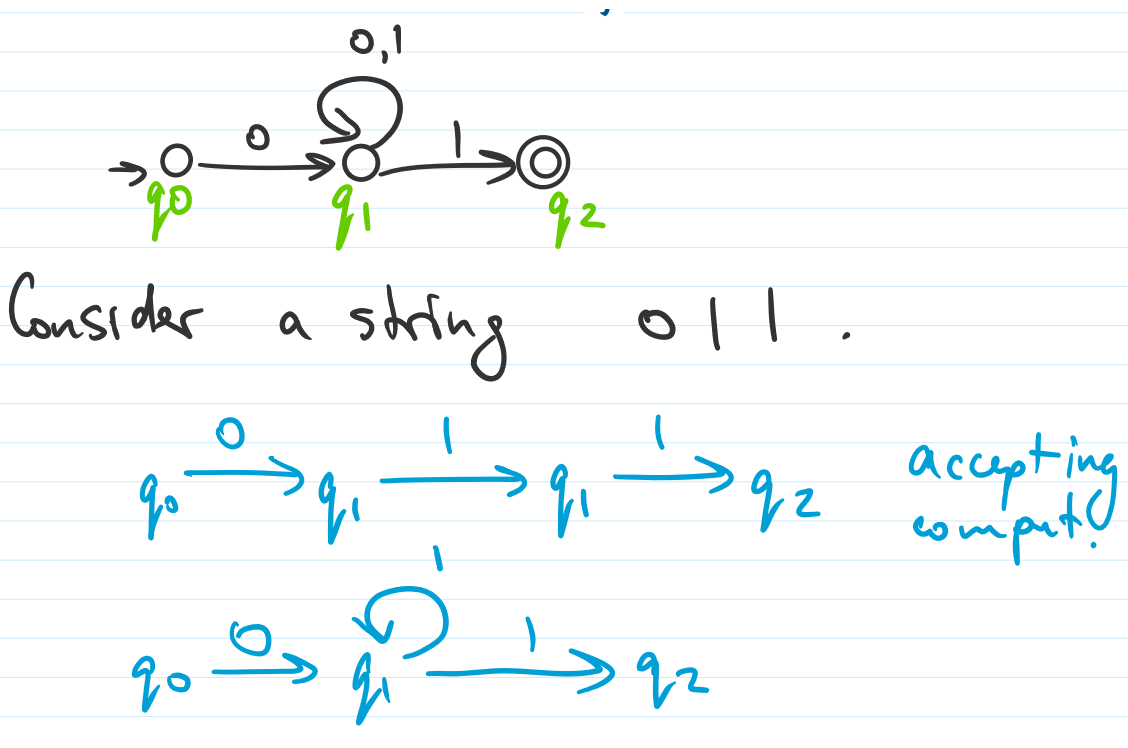 0,1
0 1
q0 q1 q2
Consider a string 011.
0 1 1
q0 q1 q1 q2 accepting
comput!
1
0 1
q0 q1 q2